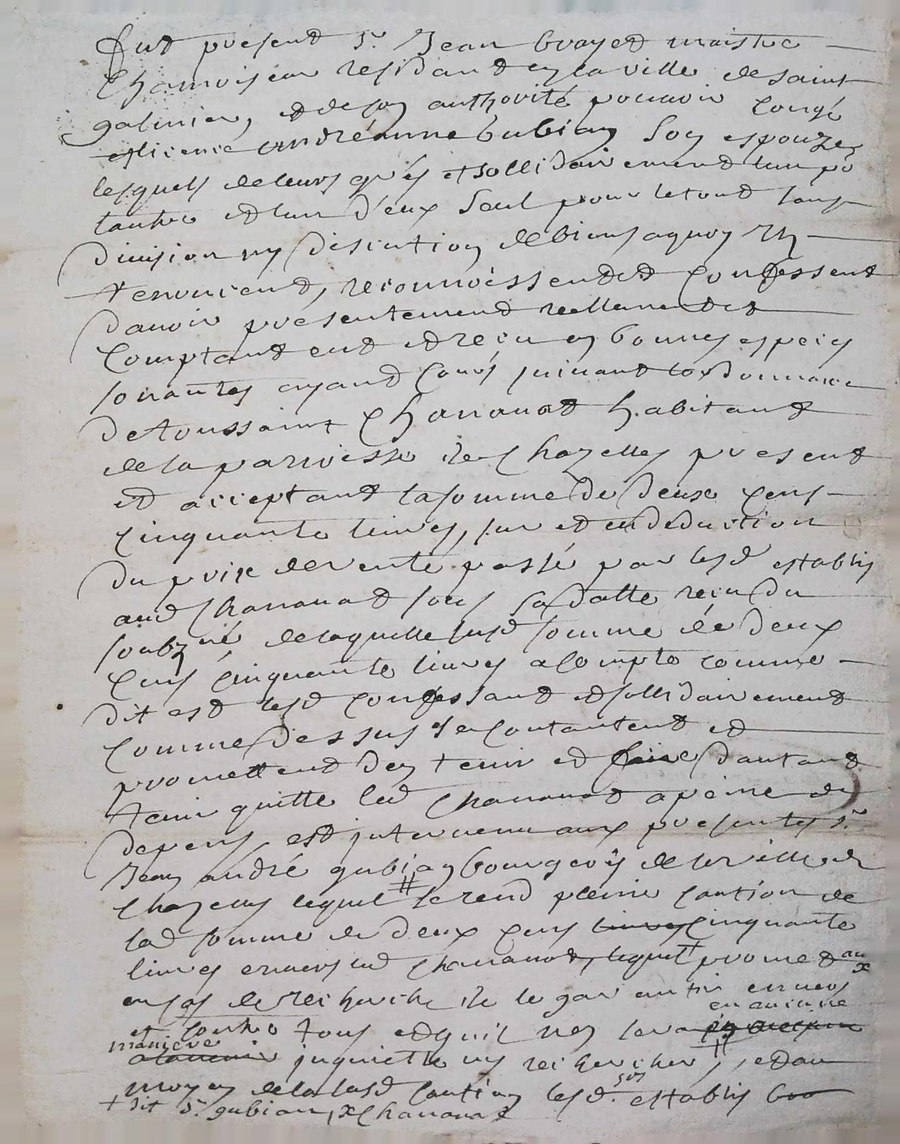 fut present Sr. Jean Goayet maistre
Chamoiseur residant en la ville de saint
galmier, et de son authorité pouvoir congé
et licence andréanne gubian son espouze
lesquels de leurs grés et sollidairement l'un po
lautre et lun d'eux seul pour le tout sans
division ny discution de biens a quoy ils
renoncent, reconnoissent et confessent
d'avoir presentement reellement et
comptant eut et receu en bonnes espeices
sonantes ayant cours suivant lordonnance
de toussaint Chanavat habitant
de la parroisse de Chazelles present
et acceptant la somme de deux cens
cinquante livres, sur et en deduction
du prix de vente passé par lesd establis
aud Chanavat sous sa datte receu du
soubzné de laquelle susd somme de deux
cens cinquante livres a compte comme
dit est lesd confessant et sollidairement
comme dessus se contantent et
promettent den tenir et faire dautant
tenir quitte led Chanavat a peine de
depens, est intervenu aux presentes sr.
Jean andré gubian bourgeois de la ville de
Chazelles lequel # se rend pleine caution de
lad somme de deux cens livres cinquante
livres envers led Chanavat, lequel promet au x
en cas de recherche de le garantir envers
et contre tous et quil nen sera en aucune
maniere inquietté ny recherché #, et au
moyen de la susd caution lesd. srs establis
+ dit sr. gubian, x Chanavat